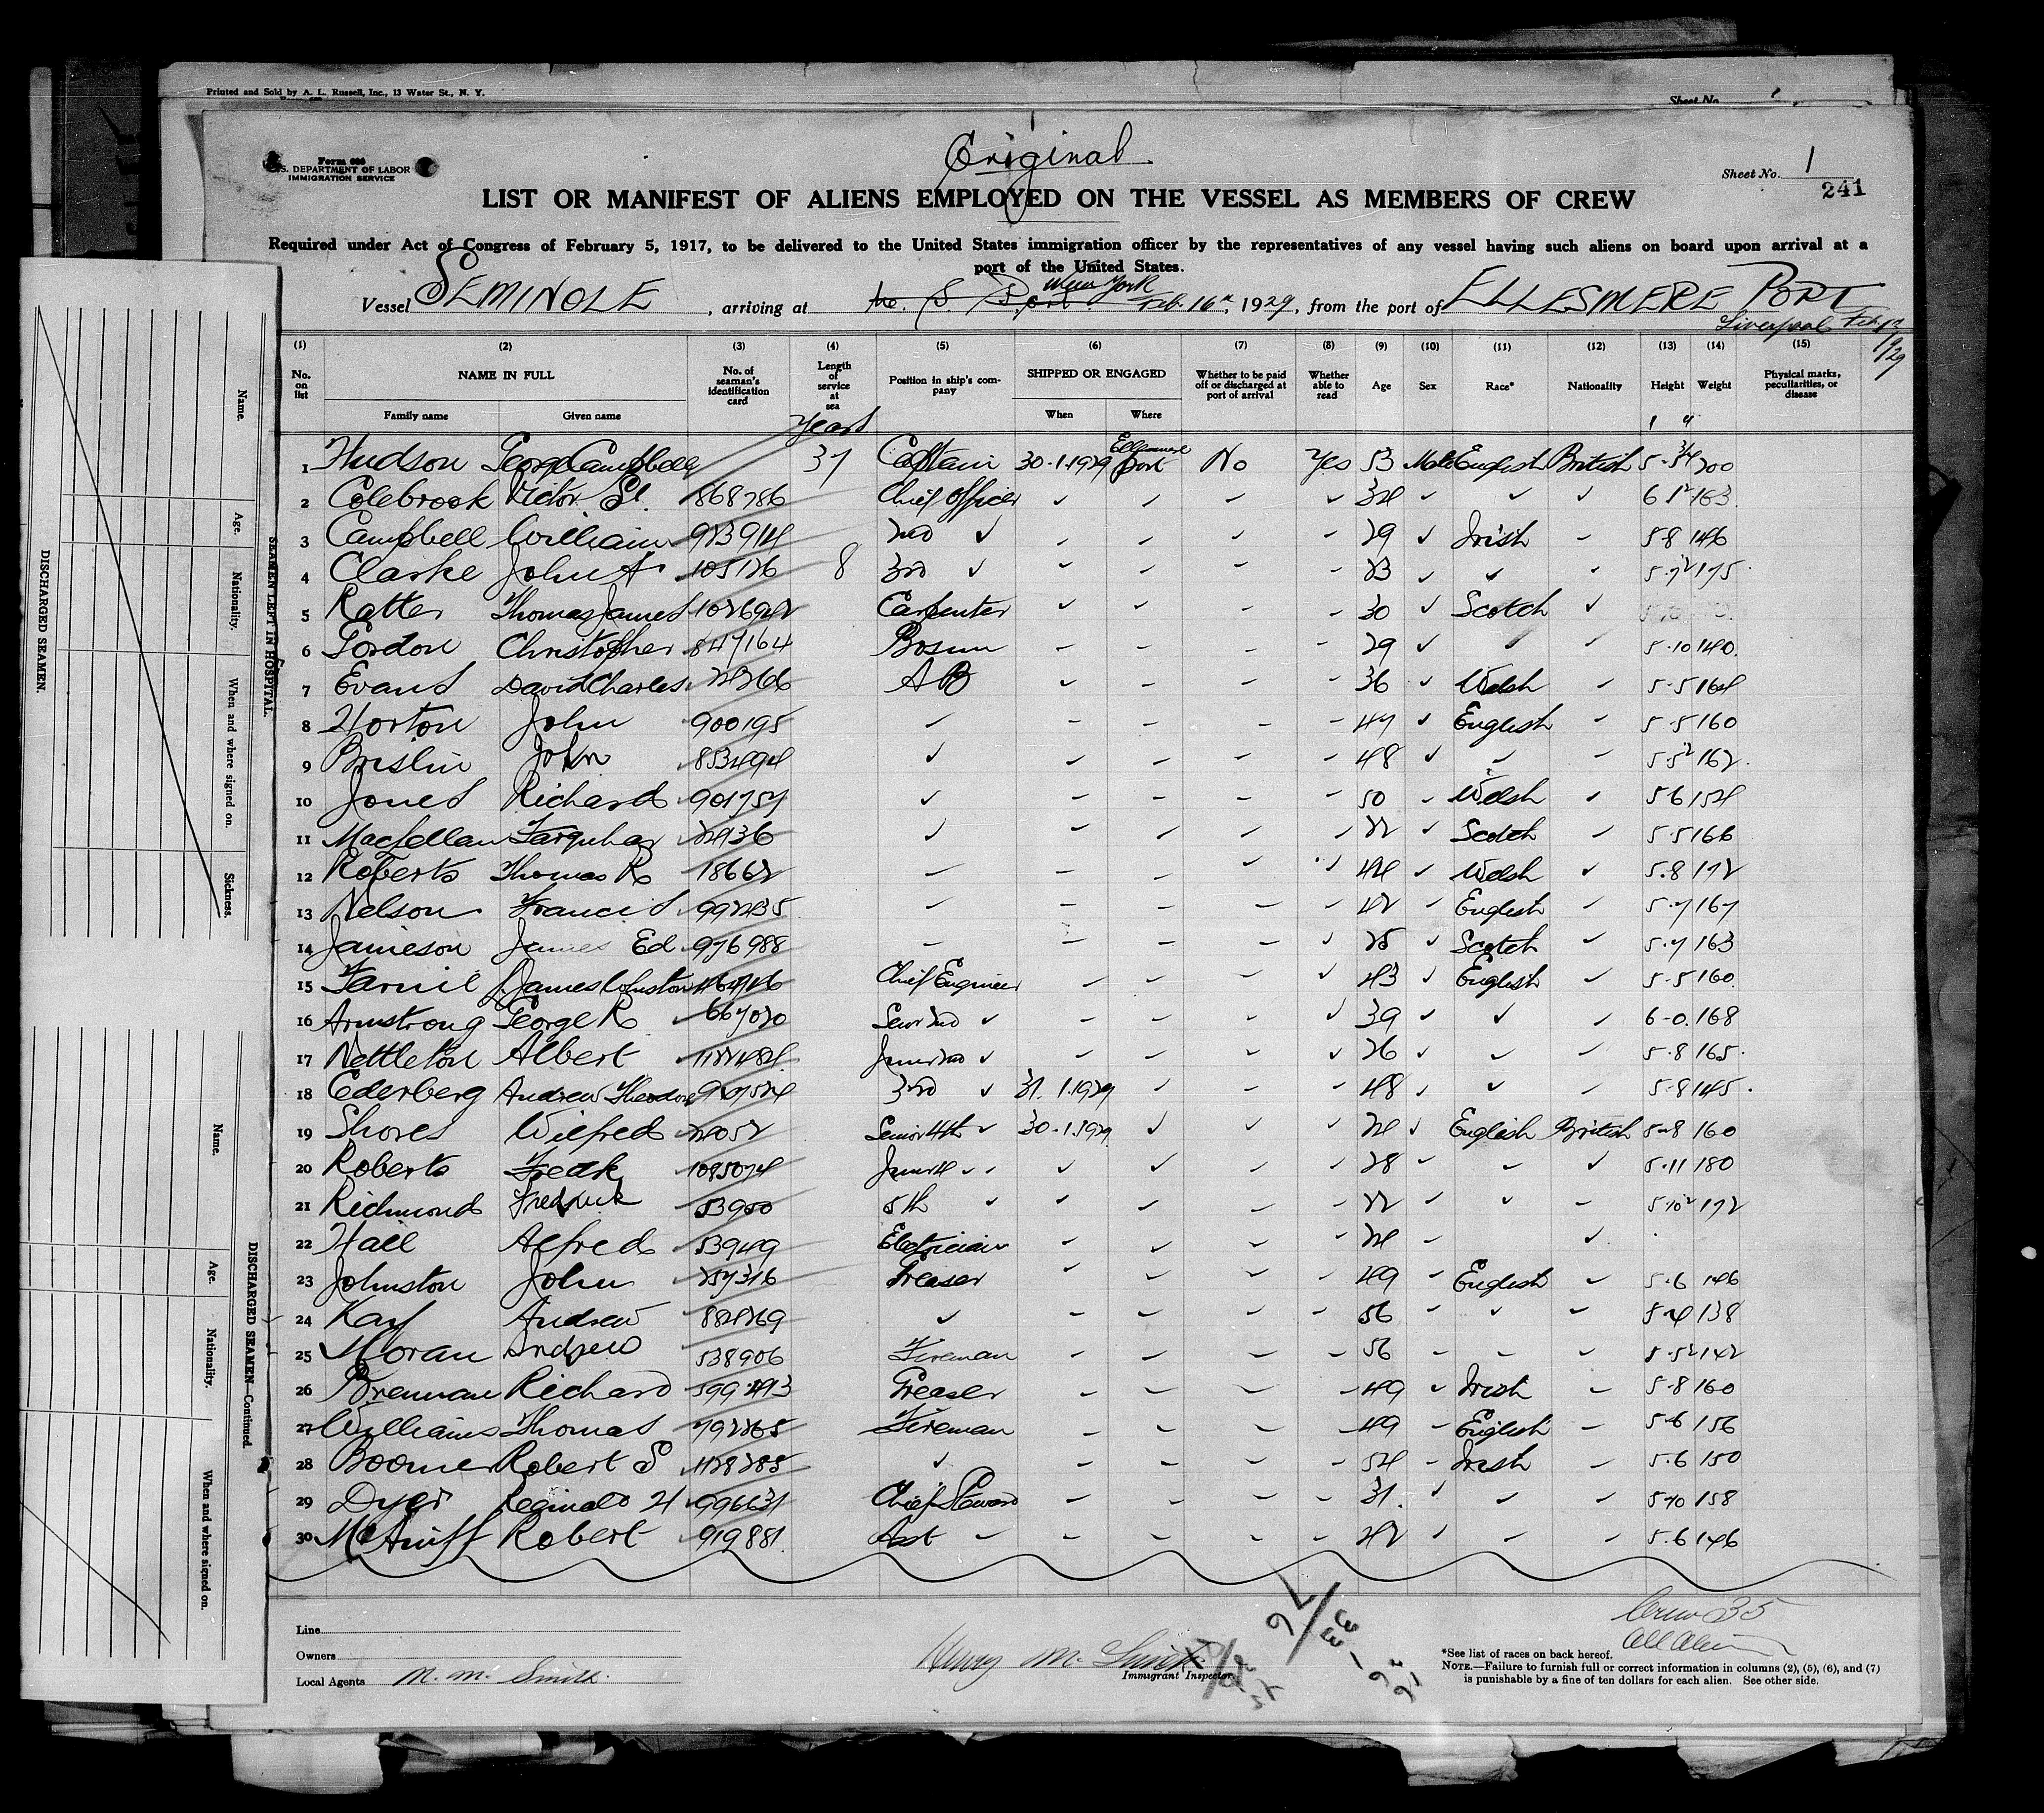 Printed and Sold by A. L. Russell, Inc., 13 Water St., N. Y.
Sheet No.
Original
Form 686
U.S. DEPARTMENT OF LABOR
IMMIGRATION SERVICE
Sheet No. 1
241
LIST OR MANIFEST OF ALIENS EMPLOYED ON THE VESSEL AS MEMBERS OF CREW
Required under Act of Congress of February 5, 1917, to be delivered to the United States immigration officer by the representatives of any vessel having such aliens on board upon arrival at a
port of the United States.
Vessel SEMINOLE, arriving at New York Feb. 16th, 1929, from the port of ELLESMERE PORT
Liverpool Feb
(1) (2) (3) (4) (5) (6) (7) (8) (9) (10) (11) (12) (13) (14) (15)
No. on list NAME IN FULL Family name Given name No. of seaman's identification card Length of service at sea Position in ship's company SHIPPED OR ENGAGED When Where Whether to be paid off or discharged at port of arrival Whether able to read Age Sex Race* Nationality Height Weight Physical marks, peculiarities, or disease
years
1 Hudson George Campbell 37 Captain 30-1-1929 Ellesmere Port No Yes 53 Male English British 5-3¾ 200
2 Colebrook Victor St. 868786 Chief Officer ✓ 34 ✓ ✓ ✓ 6 1² 163
3 Campbell William 923914 2nd ✓ 29 ✓ Irish 5-8 146
4 Clarke John A 105126 8 3rd ✓ 23 ✓ ✓ 5-7² 175
5 Ratter Thomas James Carpenter ✓ 30 ✓ Scotch ✓
6 Gordon Christopher 847164 Bosun 29 ✓ 5-10 140
7 Evans David Charles AB 36 ✓ Welsh 5-5 164
8 Horton John 900195 47 ✓ English 5-5 160
9 Brislin John 853494 ✓ 48 ✓ 5-5² 162
10 Jones Richard 901757 ✓ 50 Welsh 5-6 154
11 MacLellan Farquhar 24936 ✓ 22 Scotch 5-5 166
12 Roberts Thomas R 18662 44 Welsh 5-8 172
13 Nelson Francis 992435 42 English 5-7 167
14 Jamieson James Ed 976988 25 Scotch 5-7 163
15 Farnil James Johnston Chief Engineer 43 English 5-5 160
16 Armstrong George R 667020 Senr 2nd ✓ 39 ✓ 6-0 168
17 Nettleton Albert Junr 2nd ✓ 26 5-8 165
18 Ederberg Andrew Theodore 3rd ✓ 31-1-1929 48 5-8 145
19 Shores Wilfred 29052 Senior 4th 30-1-1929 24 English British 5-8 160
20 Roberts Fredk 1095074 Junr 4 28 5-11 180
21 Richmond Fredrick 53950 5th 22 5-10² 172
22 Hall Alfred 53949 Electrician 24
23 Johnston John 257316 Greaser 49 English 5-6 146
24 Kay Andrew 882269 ✓ 56 5-4 138
25 Moran Andrew 538906 Fireman 56 5-5² 142
26 Brennan Richard 599293 Greaser 49 Irish 5-8 160
27 Williams Thomas 792265 Fireman 49 English 5-6 156
28 Boomer Robert S 1128288 ✓ 54 Irish 5-6 150
29 Dyer Reginald H 996631 Chief Steward 31 5-10 158
30 Robert 919881 Ast 42 5-6 146
Line
Owners
Local Agents M. M. Smith
Henry M. Smith
Immigrant Inspector
Crew 35
All Alien
*See list of races on back hereof.
NOTE.—Failure to furnish full or correct information in columns (2), (5), (6), and (7)
is punishable by a fine of ten dollars for each alien. See other side.
SEAMEN LEFT IN HOSPITAL.
Name. Age. Nationality. When and where signed on. Sickness.
DISCHARGED SEAMEN.
DISCHARGED SEAMEN—Continued.
Name. Age. Nationality. When and where signed on.